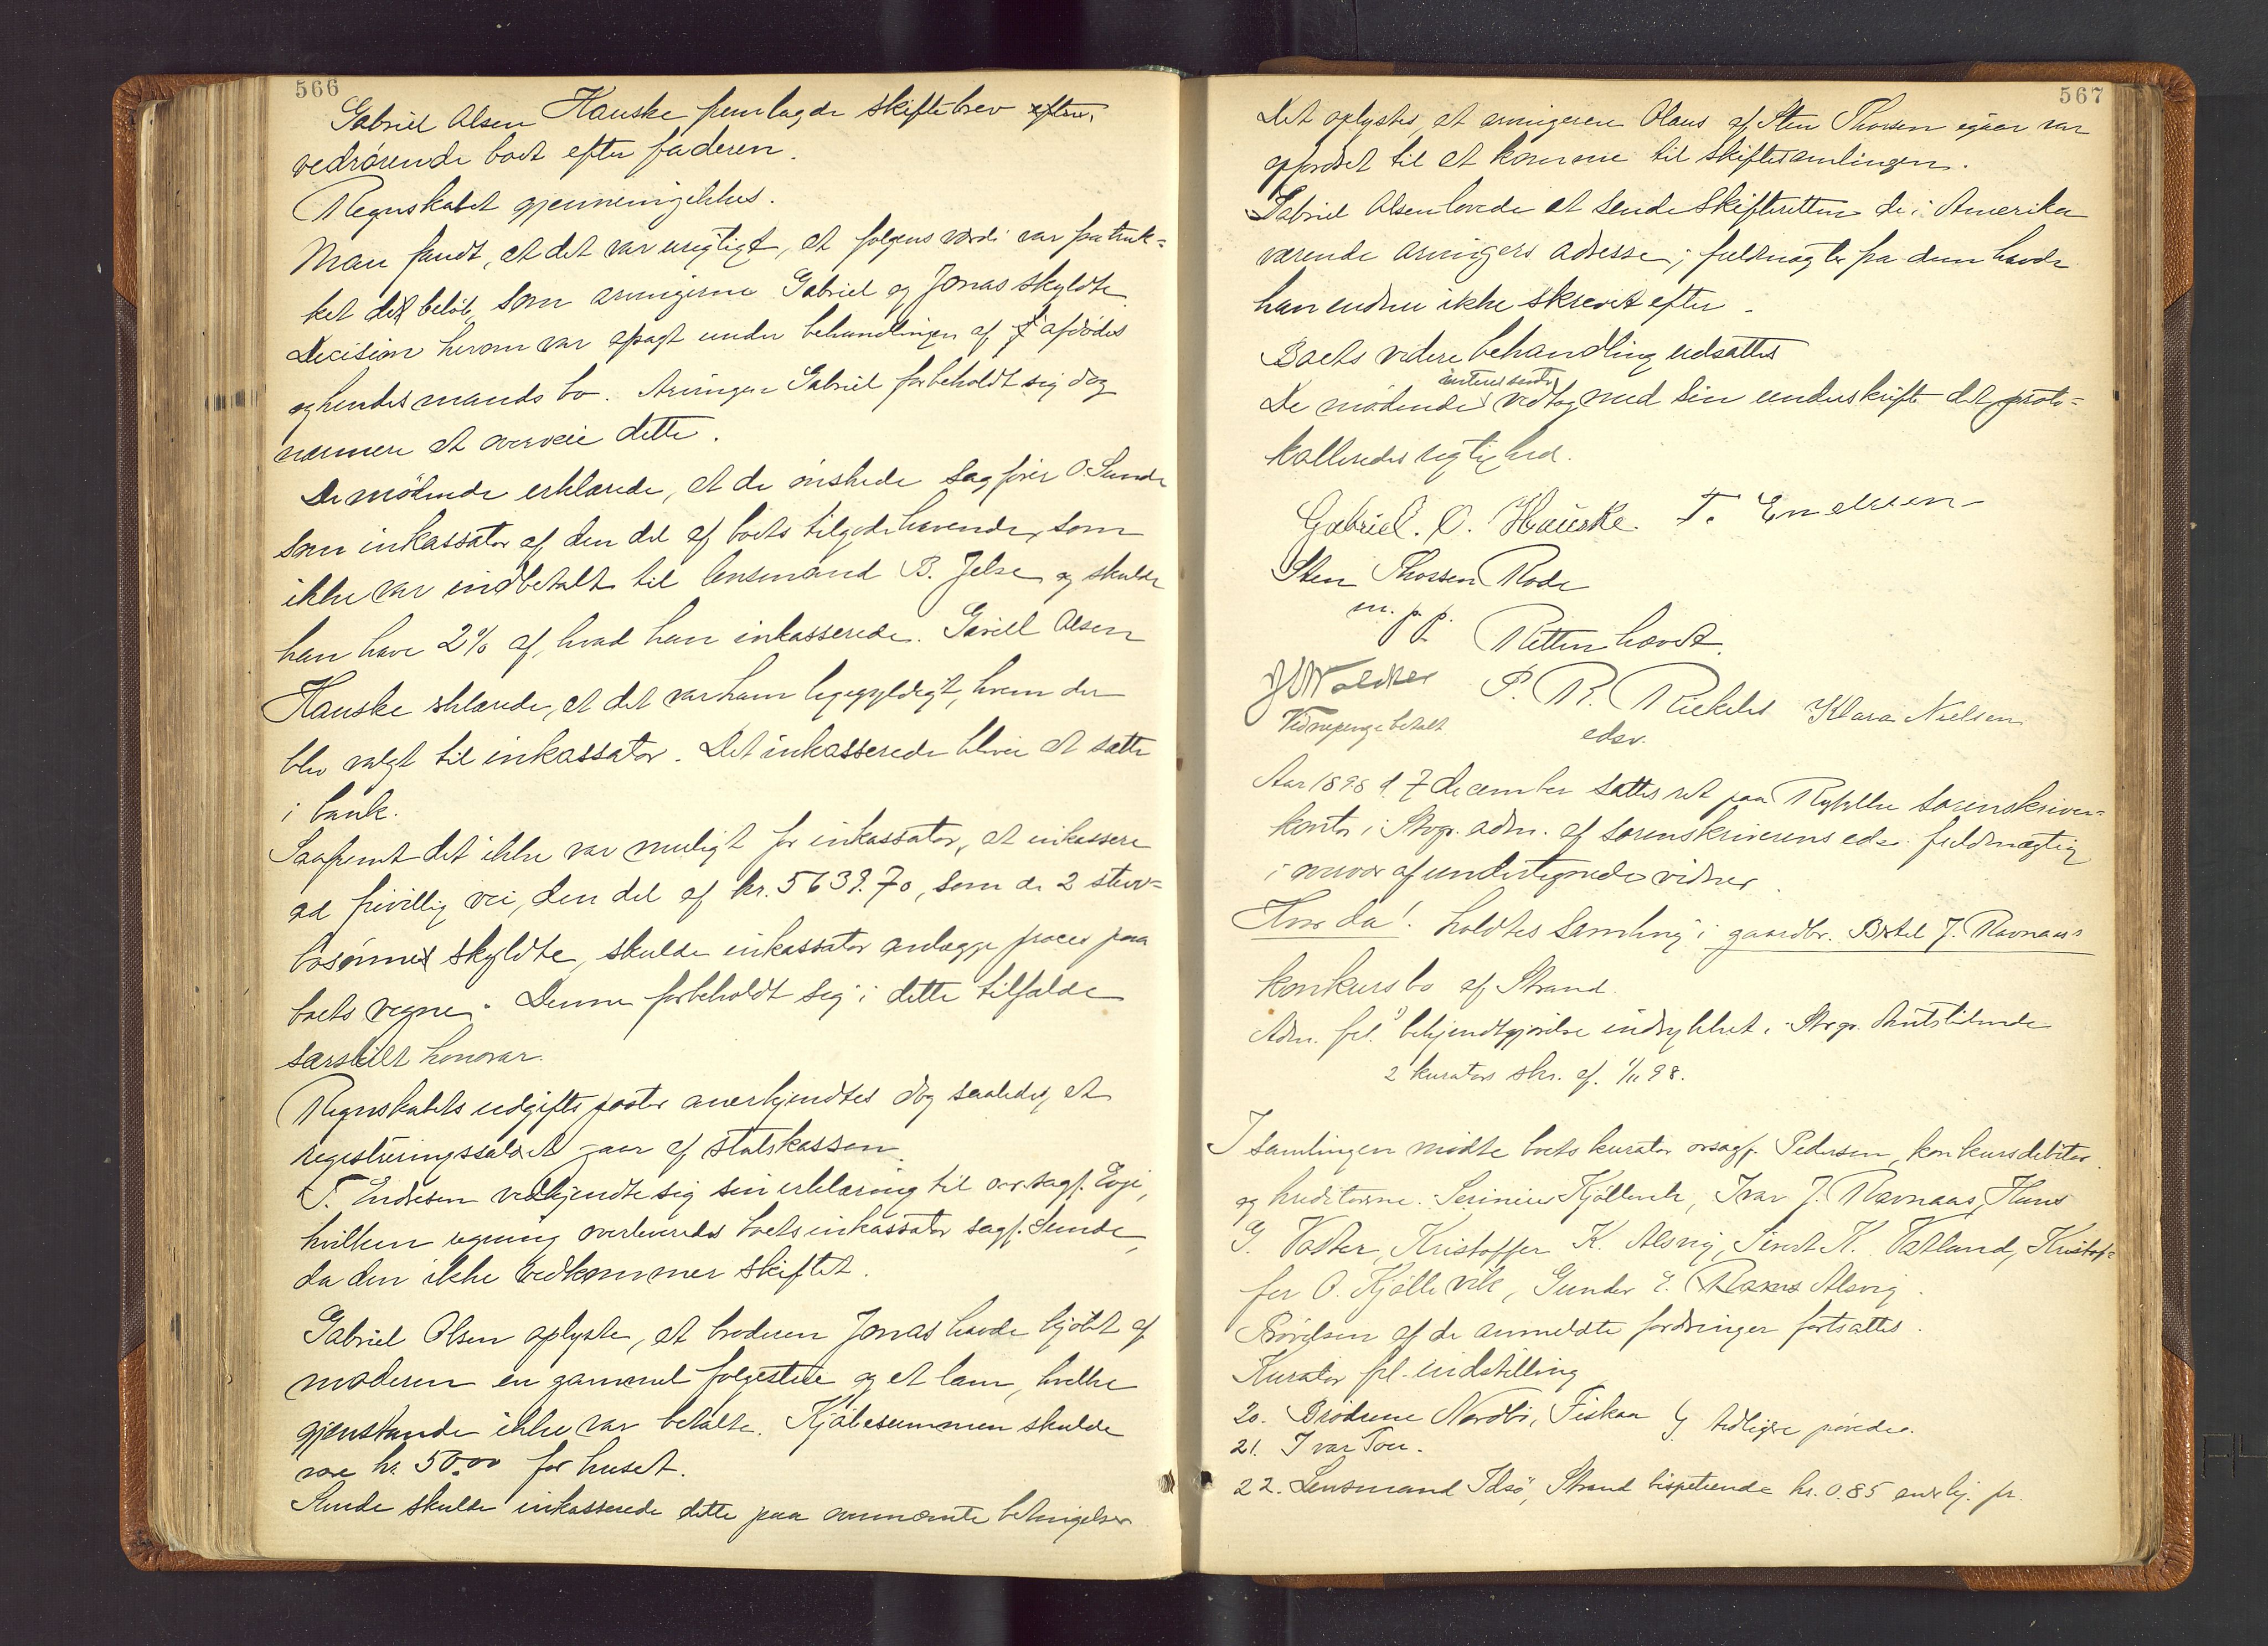 566
Gabriel Olsen Hauske fremlagde skiftebrev efter,
vedrørende boet efter faderen.
Regnskabet gjennemgikkes.
Man fandt, at det var urigtigt, at følgens værdi var fratruk-
ket det beløb, som arvingerne Gabriel og Jonas skyldte.
Decision herom var afsagt under behandlingen af afdødes
og hendes mands bo. Arvingen Gabriel forbeholdt sig dog
nærmere at overveie dette.
De mødende erklærede, at de ønskede sagfører O. Sunde
som inkassator af den del af boets tilgodehavende, som
ikke var indbetalt til lensmand B. Jelse og skulde
han have 2% af, hvad han inkasserede. Gabriel Olsen
Hauske erklærede, at det var ham ligegyldigt, hvem der
blev valgt til inkassator. Det inkasserede bliver at sætte
i bank.
Saafremt det ikke var muligt for inkassator, at inkassere
ad frivillig vei, den del af kr. 5639.70, som de 2 sterv-
bosønner skyldte, skulde inkassator anlægge proces paa
boets vegne. Denne forbeholdt sig i dette tilfælde
særskilt honorar.
Regnskabets udgiftsposter anerkjendtes dog saaledes, at
registreringssalæret gaar af statskassen.
T. Endresen vedkjendte sig sin erklæring til oversagf. Evje,
hvilken regning overleveredes boets inkassator sagf. Sunde,
da den ikke vedkommer skiftet.
Gabriel Olsen oplyste, at broderen Jonas havde kjøbt af
moderen en gammel følgestue og et lam, hvilke
gjenstande ikke var betalte. Kjøbesummen skulde
være kr. 50.00 for huset.
Sunde skulde inkasserede dette paa ovennævnte betingelser
567
Det oplystes, at arvingeren Olaus af Sten Thorsen igaar var
opfordret til at komme til skiftesamlingen.
Gabriel Olsen lovede at sende skifteretten de i Amerika
værende arvingers adresse; fuldmagter fra dem havde
han endnu ikke skrevet efter.
Boets videre behandling udsattes
interessenter
De mødende vedtog med sin underskrift det proto-
kolleredes rigtighed.
Gabriel. O. Hauske. T. Endresen
Sten Thorsen Rode
m. p. p.
Retten hævet.
P. R. Rickels Klara Nielsen
Vidnepenge betalt edsv.
Aar 1898 d. 7 december sattes ret paa Ryfylke sorenskriver-
kontor i Stvgr. adm. af sorenskriverens edsv. fuldmægtig
i nærvær af undertegnede vidner.
Hvor da! holdtes samling i gaardbr. Bertel J. Ravnaas
konkursbo af Strand.
Adm. frl. bekjendtgjørelse indrykket i Stvgr. Amtstidende
2 kurators skr. af 1/11 98.
I samlingen mødte boets kurator orsagf. Pedersen, konkursdebitor
og kreditorerne. Serinius Kjøllevik, Ivar J. Ravnaas, Hans
G. Vatter, Kristoffer K. Alsvig, Sivert K. Vatland, Kristof-
fer O. Kjøllevik, Gunder E. Alsvig.
Prøvelsen af de anmeldte fordringer fortsattes.
Kurator frl. indstilling
20. Brødrene Nordbø, Fiskaa } tidligere prøvede.
21. Ivar Tou.
22. Lensmand Idsø, Strand bispetiende kr. 0.85 anerkj. pr.